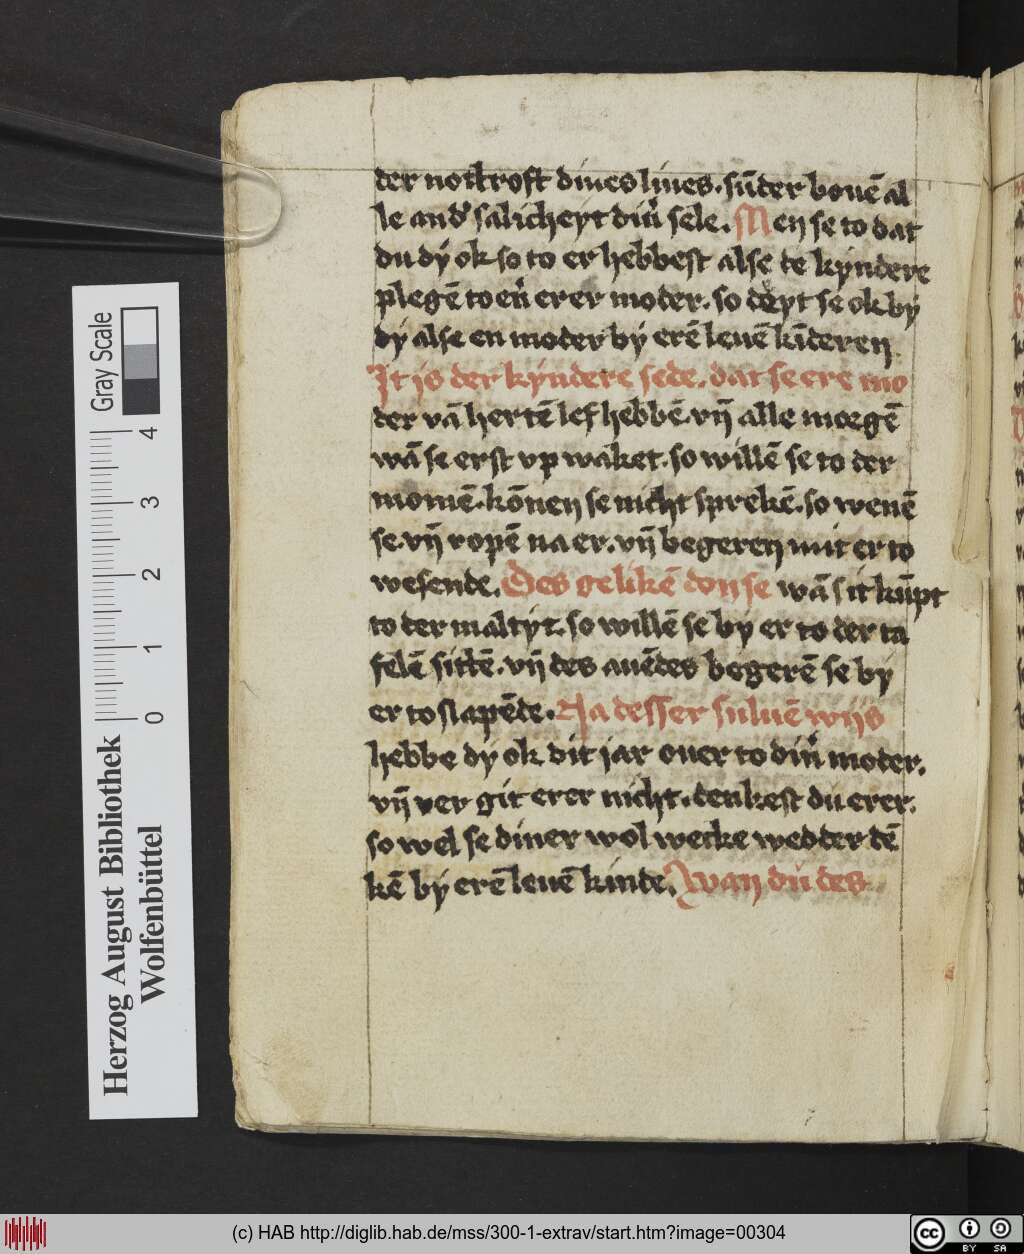 der notroft dines lives. sūder bouē al
le and' salicheyt din' sele. Men se to dat
du dy ok so to er hebbest alse te kyndere
plegē to en' erer moder. so deyt se ok by
dy alse en moder by erē leuē kīderen
It is der kyndere sede. dat se ere mo
der vā hertē lef hebbē. vn̄ alle morgē
wā se erst vp waket. so willē se to der
momē. kōnen se nicht sprekē. so wenē
se. vn̄ ropē na er. vn̄ begeren mit er to
wesende. Des gelikē don se wā s it kūpt
to der maltyt. so willē se by er to der ta
felē sittē. vn̄ des auēdes begerē se by
er to slapēde. Na desser suluē wijs
hebbe dy ok dit jar ouer to din' moder.
vn̄ ver git erer nicht. denkest du erer.
so wel se diner wol wecke wedder dē
kē by erē leuē kinde. Wan du des
Herzog August Bibliothek
Wolfenbüttel
Gray Scale
0 1 2 3 4
(c) HAB http://diglib.hab.de/mss/300-1-extrav/start.htm?image=00304
cc BY SA